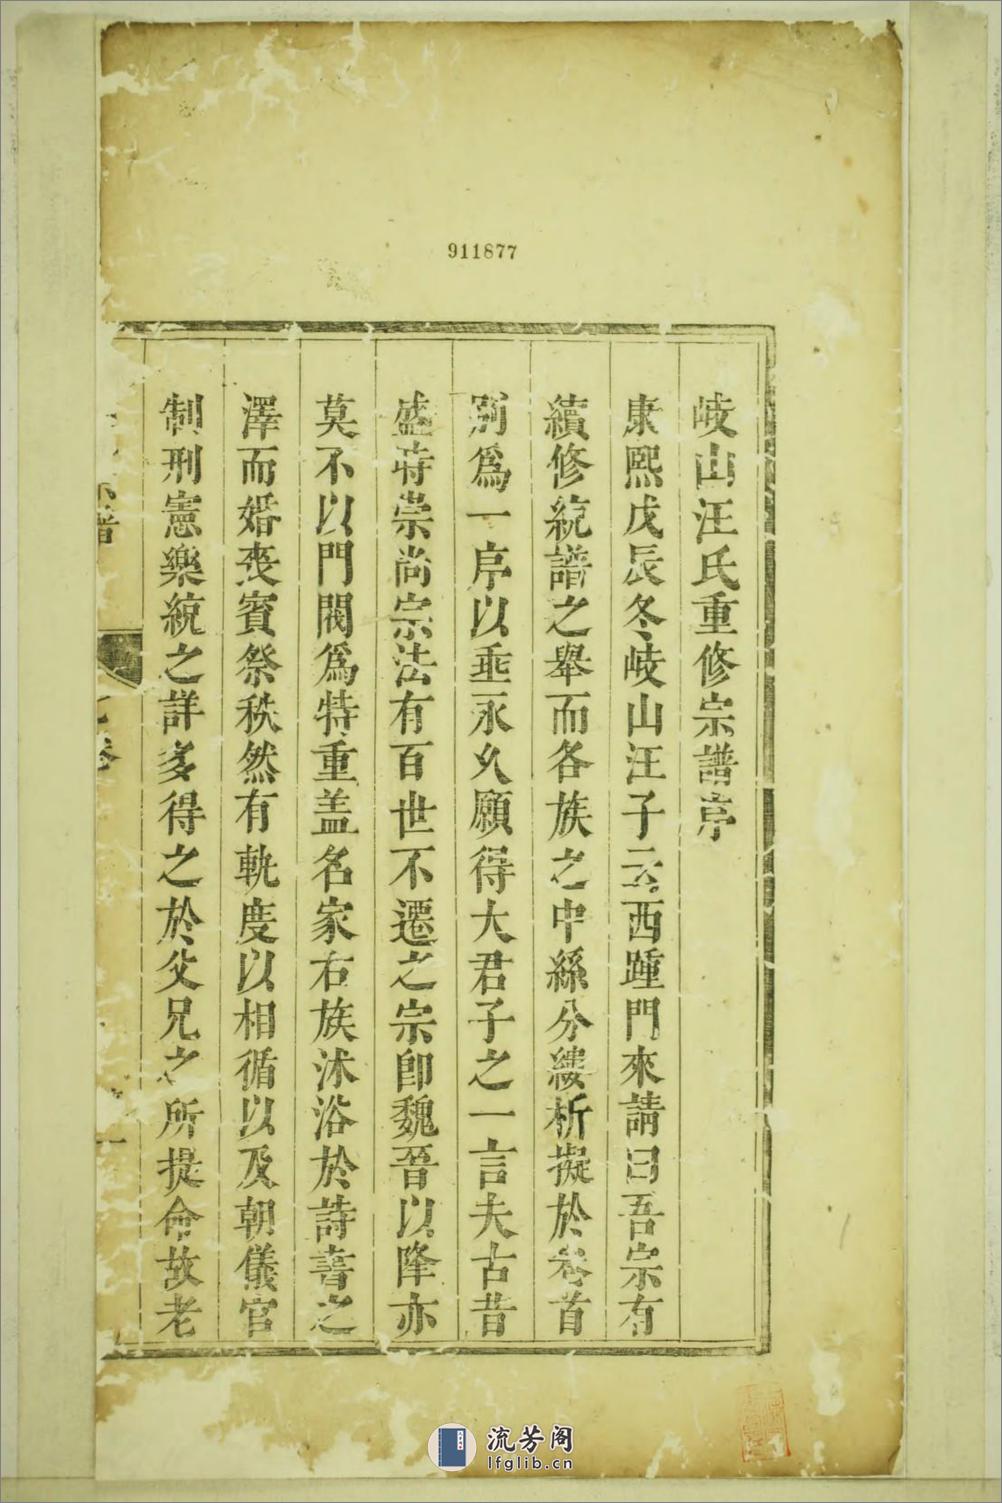 911877
岐山汪氏重修宗譜序
康熙戊辰冬岐山汪子云西踵門來請曰吾宗有
續修統譜之舉而各族之中絲分縷析擬於卷首
別爲一序以垂永久願得大君子之一言夫古昔
盛時崇尚宗法有百世不遷之宗即魏晉以降亦
莫不以門閥爲特重蓋名家右族沐浴於詩書之
澤而婚喪賓祭秩然有軌度以相循以及朝儀官
制刑憲樂統之詳多得之於父兄之所提命故老
宗譜
卷
一
流芳阁
lfglib.cn